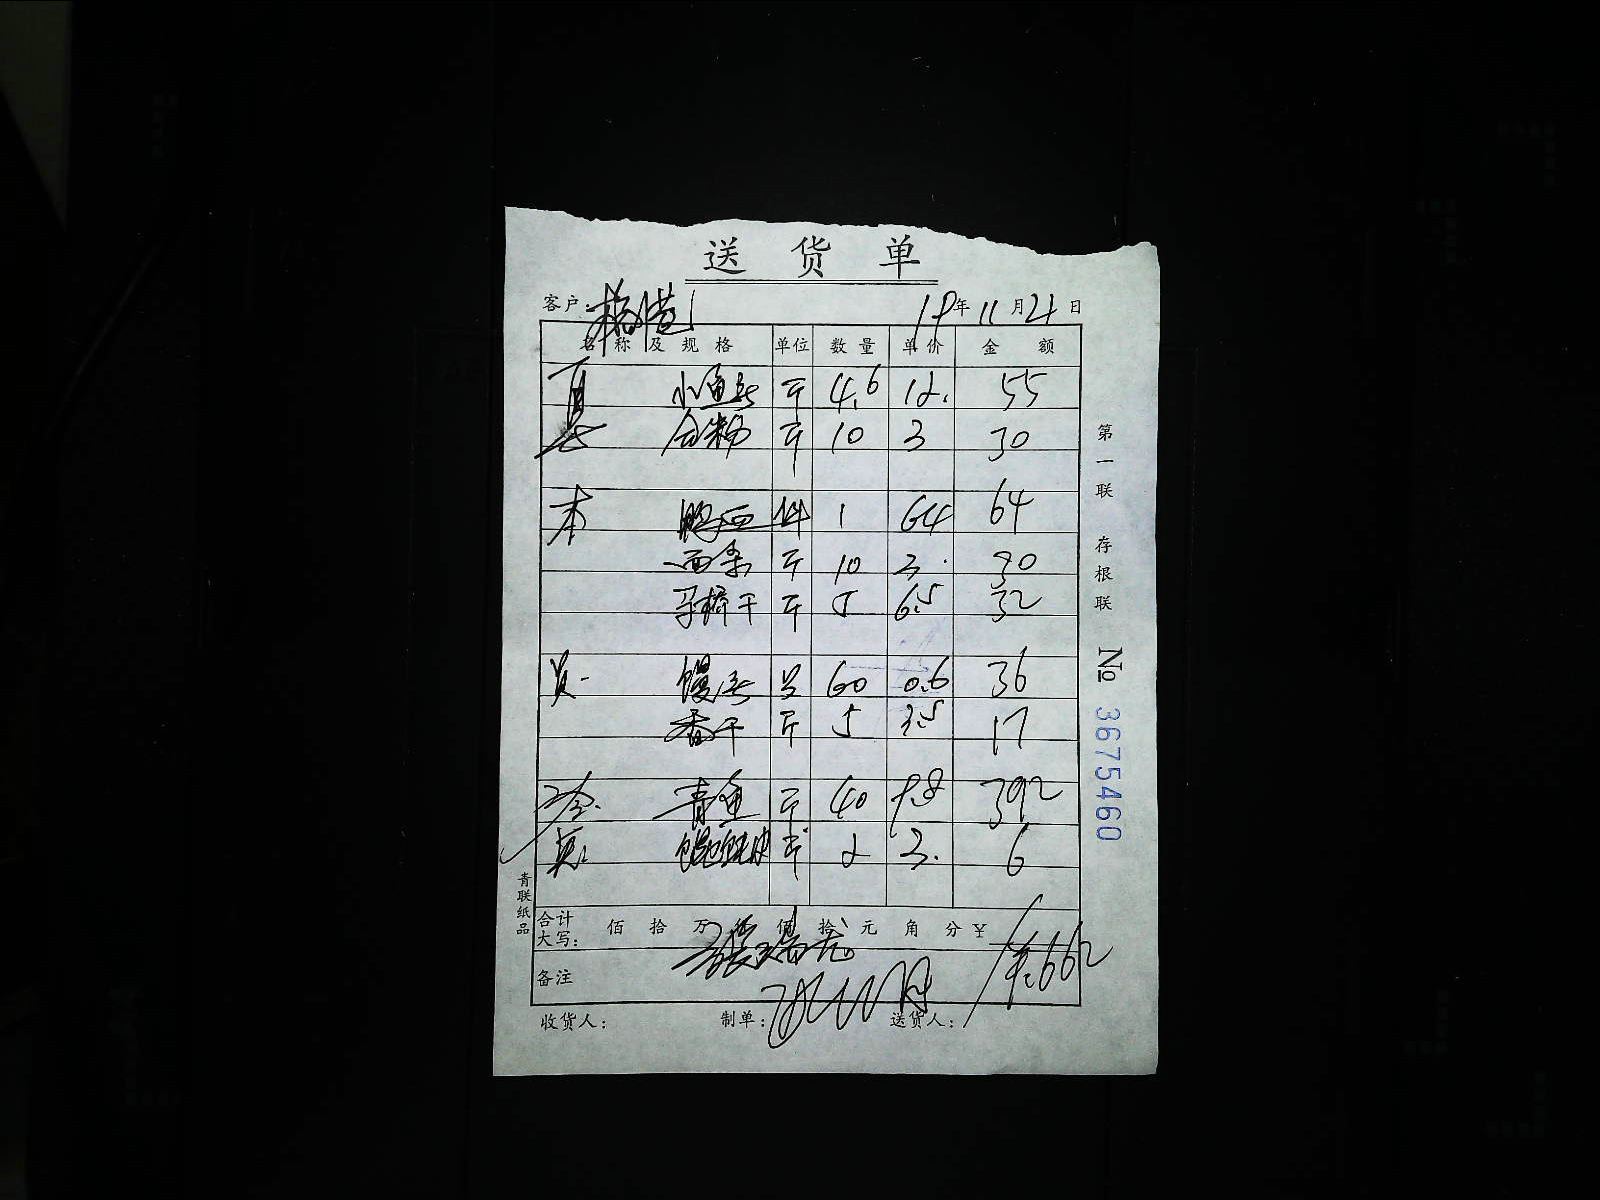 送货单
客户: 19年11月21日
名称及规格 单位 数量 单价 金额
小鱼 斤 4.6 12. 55
粉 斤 10 3 30
本 鸭血 件 1 64 64
面条 斤 10 3. 30
干 斤 5 6.5 32
馒头 只 60 0.6 36
香干 斤 5 3.5 17
青鱼 斤 40 9.8 392
馄饨皮 斤 2 3. 6
合计大写: 佰 拾 万 仟 佰 拾 元 角 分 ¥ 662
备注
收货人: 制单: 送货人:
第一联 存根联
№ 3675460
青联纸品